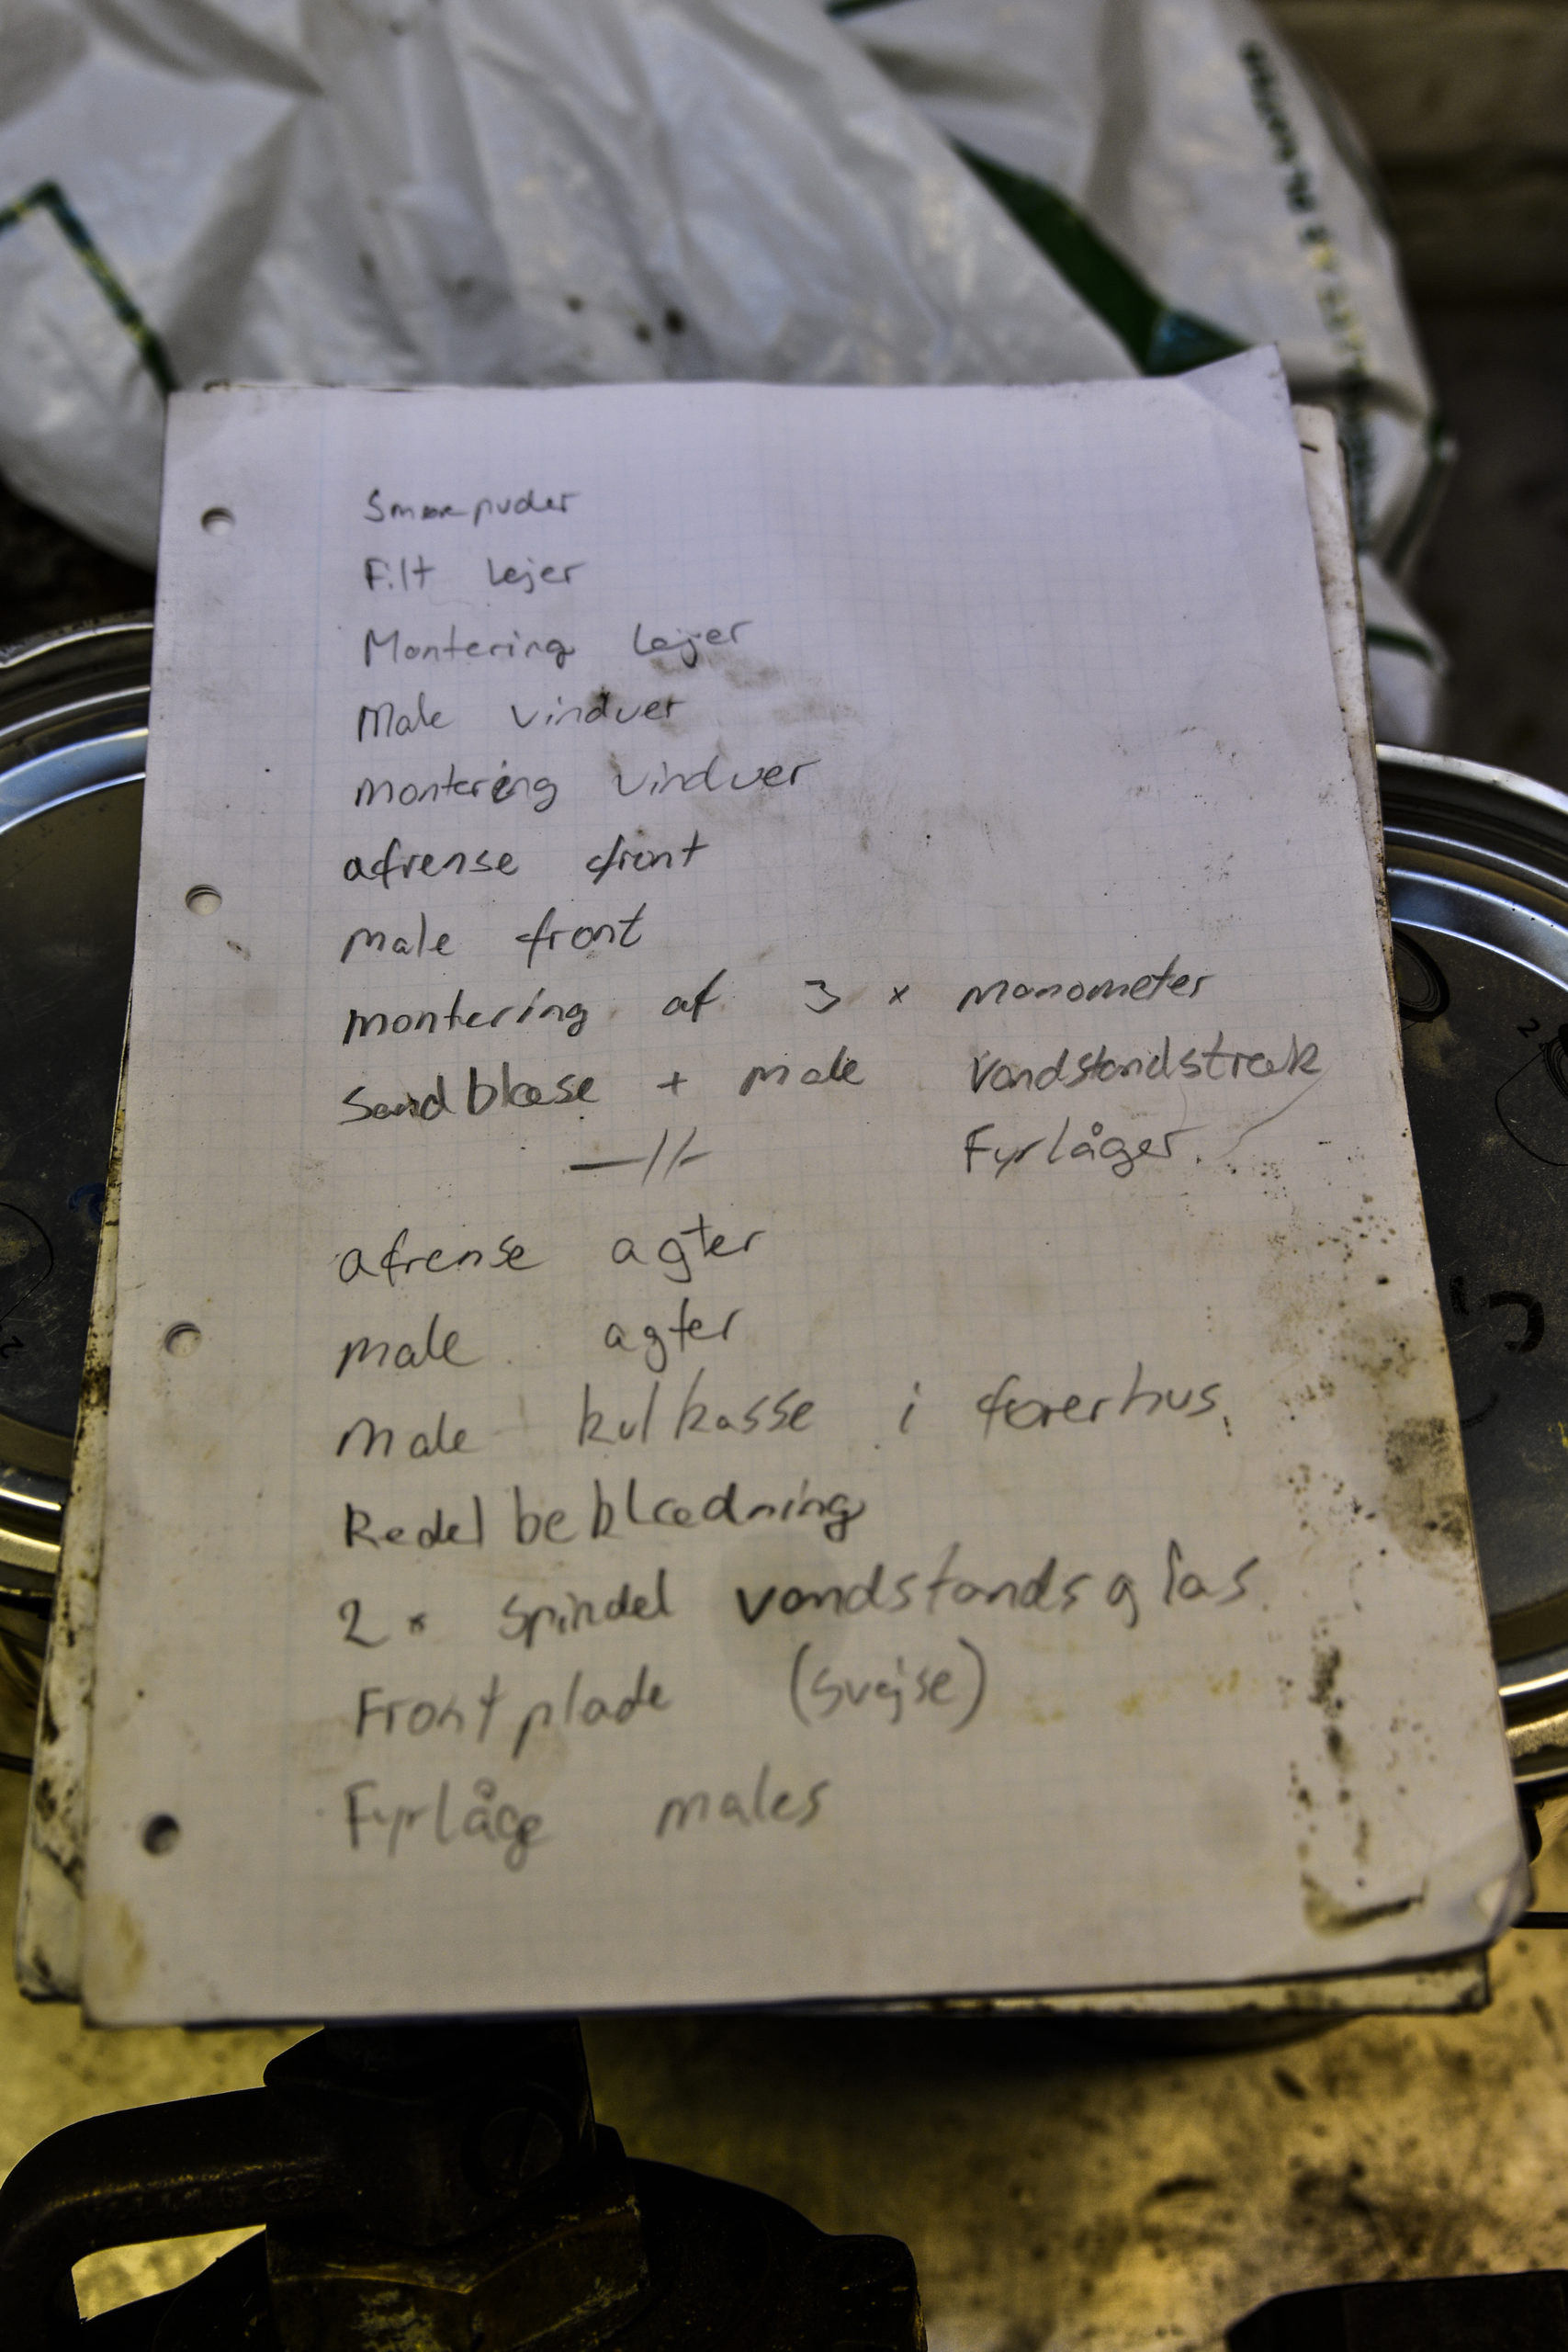 Smørepuder
Filt lejer
Montering Lejer
Male vinduer
montering vinduer
afrense front
male front
montering af 3 x manometer
Sandblæse + male Vandstandstræk
—//— Fyrlåger.
afrense agter
male agter
male kulkasse i førerhus.
Kedel beklædning
2 x spindel vandstandsglas
Frontplade (svejse)
Fyrlåge males